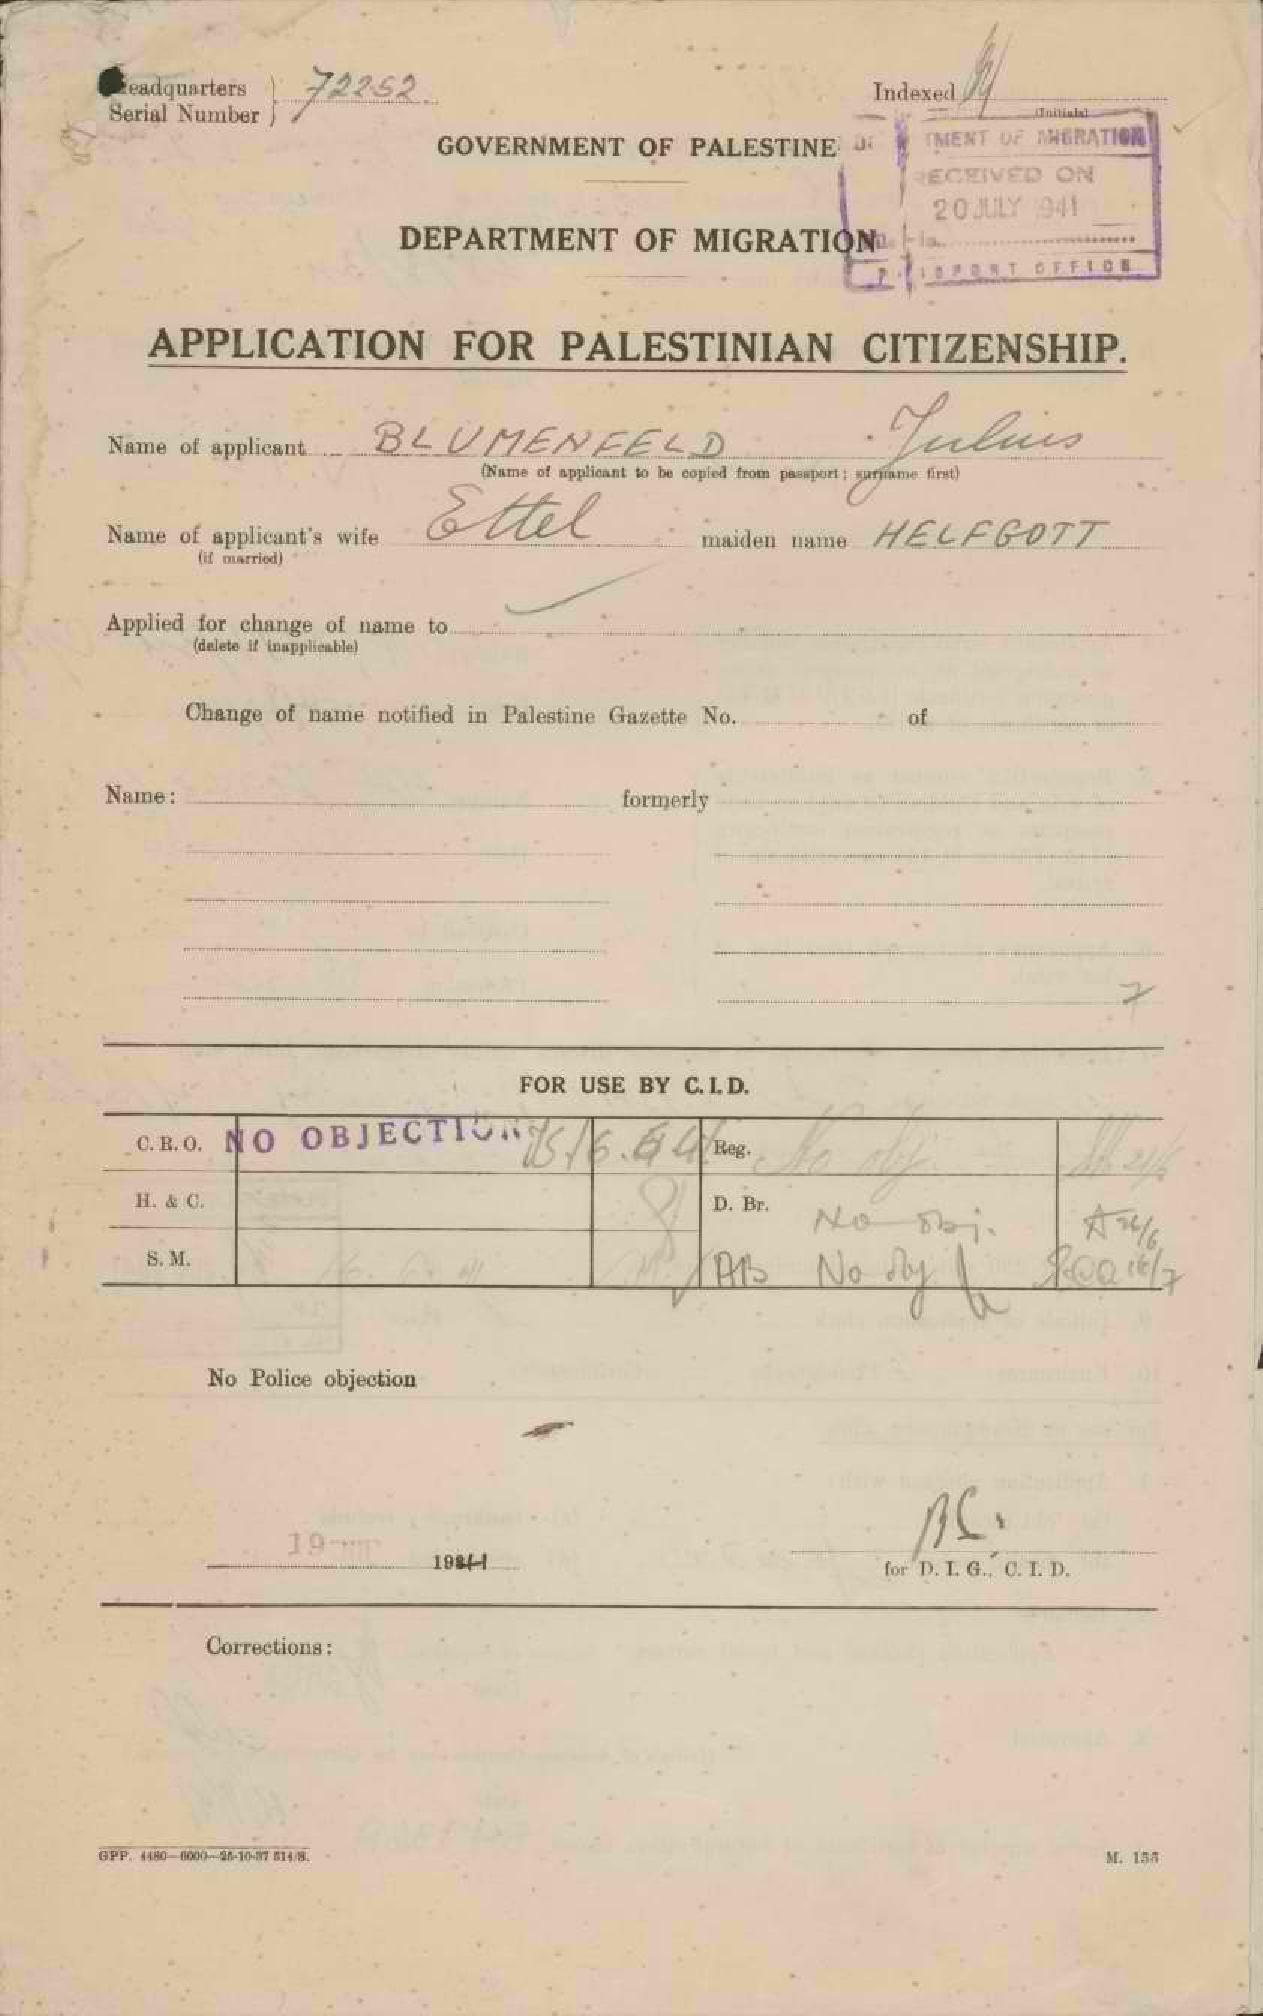 Headquarters
Serial Number } 72252
Indexed
(Initials)
GOVERNMENT OF PALESTINE
TMENT OF MIGRATION
RECEIVED ON
20 JULY 1941
DEPARTMENT OF MIGRATION
OFFICE
APPLICATION FOR PALESTINIAN CITIZENSHIP.
Name of applicant BLUMENFELD Julius
(Name of applicant to be copied from passport; surname first)
Name of applicant's wife Ettel maiden name HELFGOTT
(if married)
Applied for change of name to
(delete if inapplicable)
Change of name notified in Palestine Gazette No. of
Name: formerly
7
FOR USE BY C.I.D.
C.R.O. NO OBJECTION Reg. No obj.
H. & C. D. Br. No obj. 26/6
S. M. AB No obj 16/7
No Police objection
19 1941
for D. I. G., C. I. D.
Corrections:
GPP. 4480—6000—25-10-37 S14/S.
M. 155